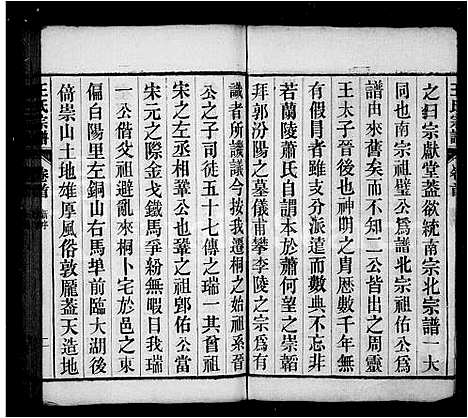 之归宗獻堂蓋欲統南宗北宗譜一大
同也南宗祖璧公爲譜北宗祖佑公爲
譜由來舊矣而不知二公皆出之周靈
王太子晉後也神明之胄歷數千年無
有假冒者無有逸者然而數典不同
若蘭陵蕭氏自謂本於蕭何望之崇韜
拜郭汾陽之墓儀甫攀李陵之宗爲有
識者所譏議今按我遷桐之始祖系晉
公之子司徒五十七傳之瑞一其酋祖
宋之左丞相鞏公也鞏之祖郢佑公當
宋元之際金戈鐵馬爭紛無暇日我瑞
一公偕爻祖避亂來桐卜宅於邑之東
偏白陽里左銅山右馬埠前臨大湖後
倚崇山土地雄厚風俗敦厐蓋天造地
王氏宗譜
卷首
新序
一
王氏宗譜
卷首